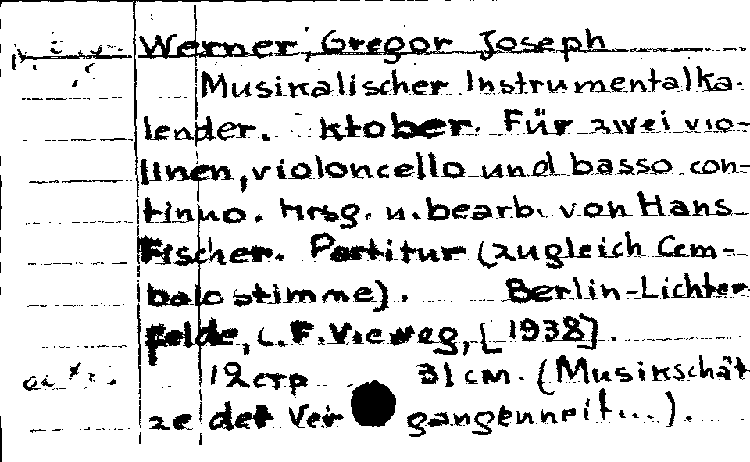 Werner, Gregor Joseph
Musikalischer Instrumentalka-
lender. ktober. Für zwei vio-
linen, violoncello und basso con-
tinuo. Hrsg. u. bearb. von Hans
Fischer. Partitur (zugleich Cem-
balostimme). Berlin-Lichter
felde, C. F. Vieweg, [1938].
12 31 cm. (Musikschät
ze der Ver gangenheit...).